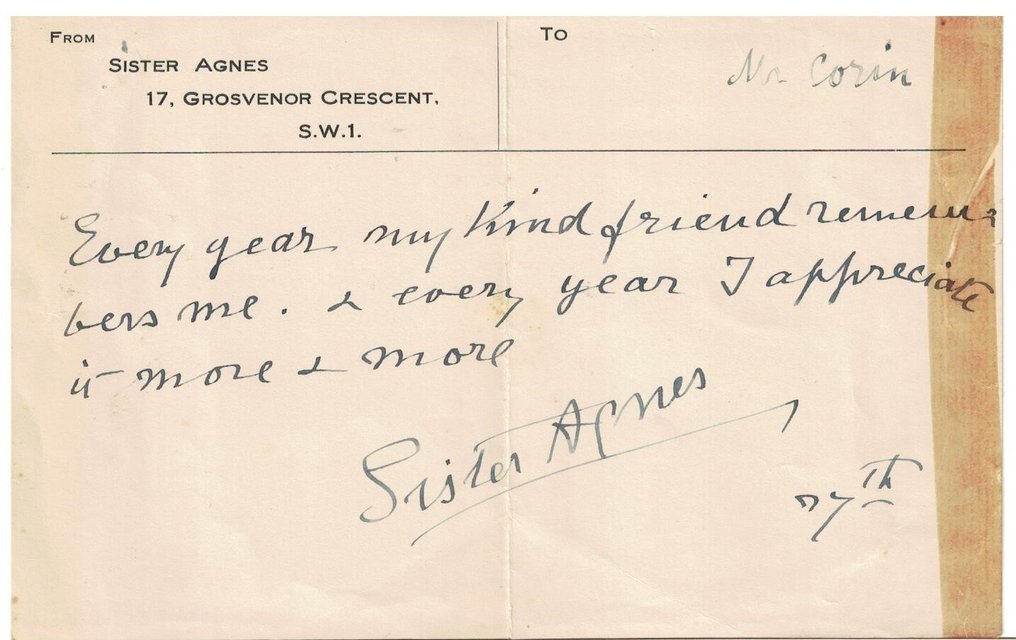 FROM
SISTER AGNES
17, GROSVENOR CRESCENT,
S.W.1.
TO
Mr Corin
Every year my kind friend remem
bers me. & every year I appreciate
it more & more
Sister Agnes
27th